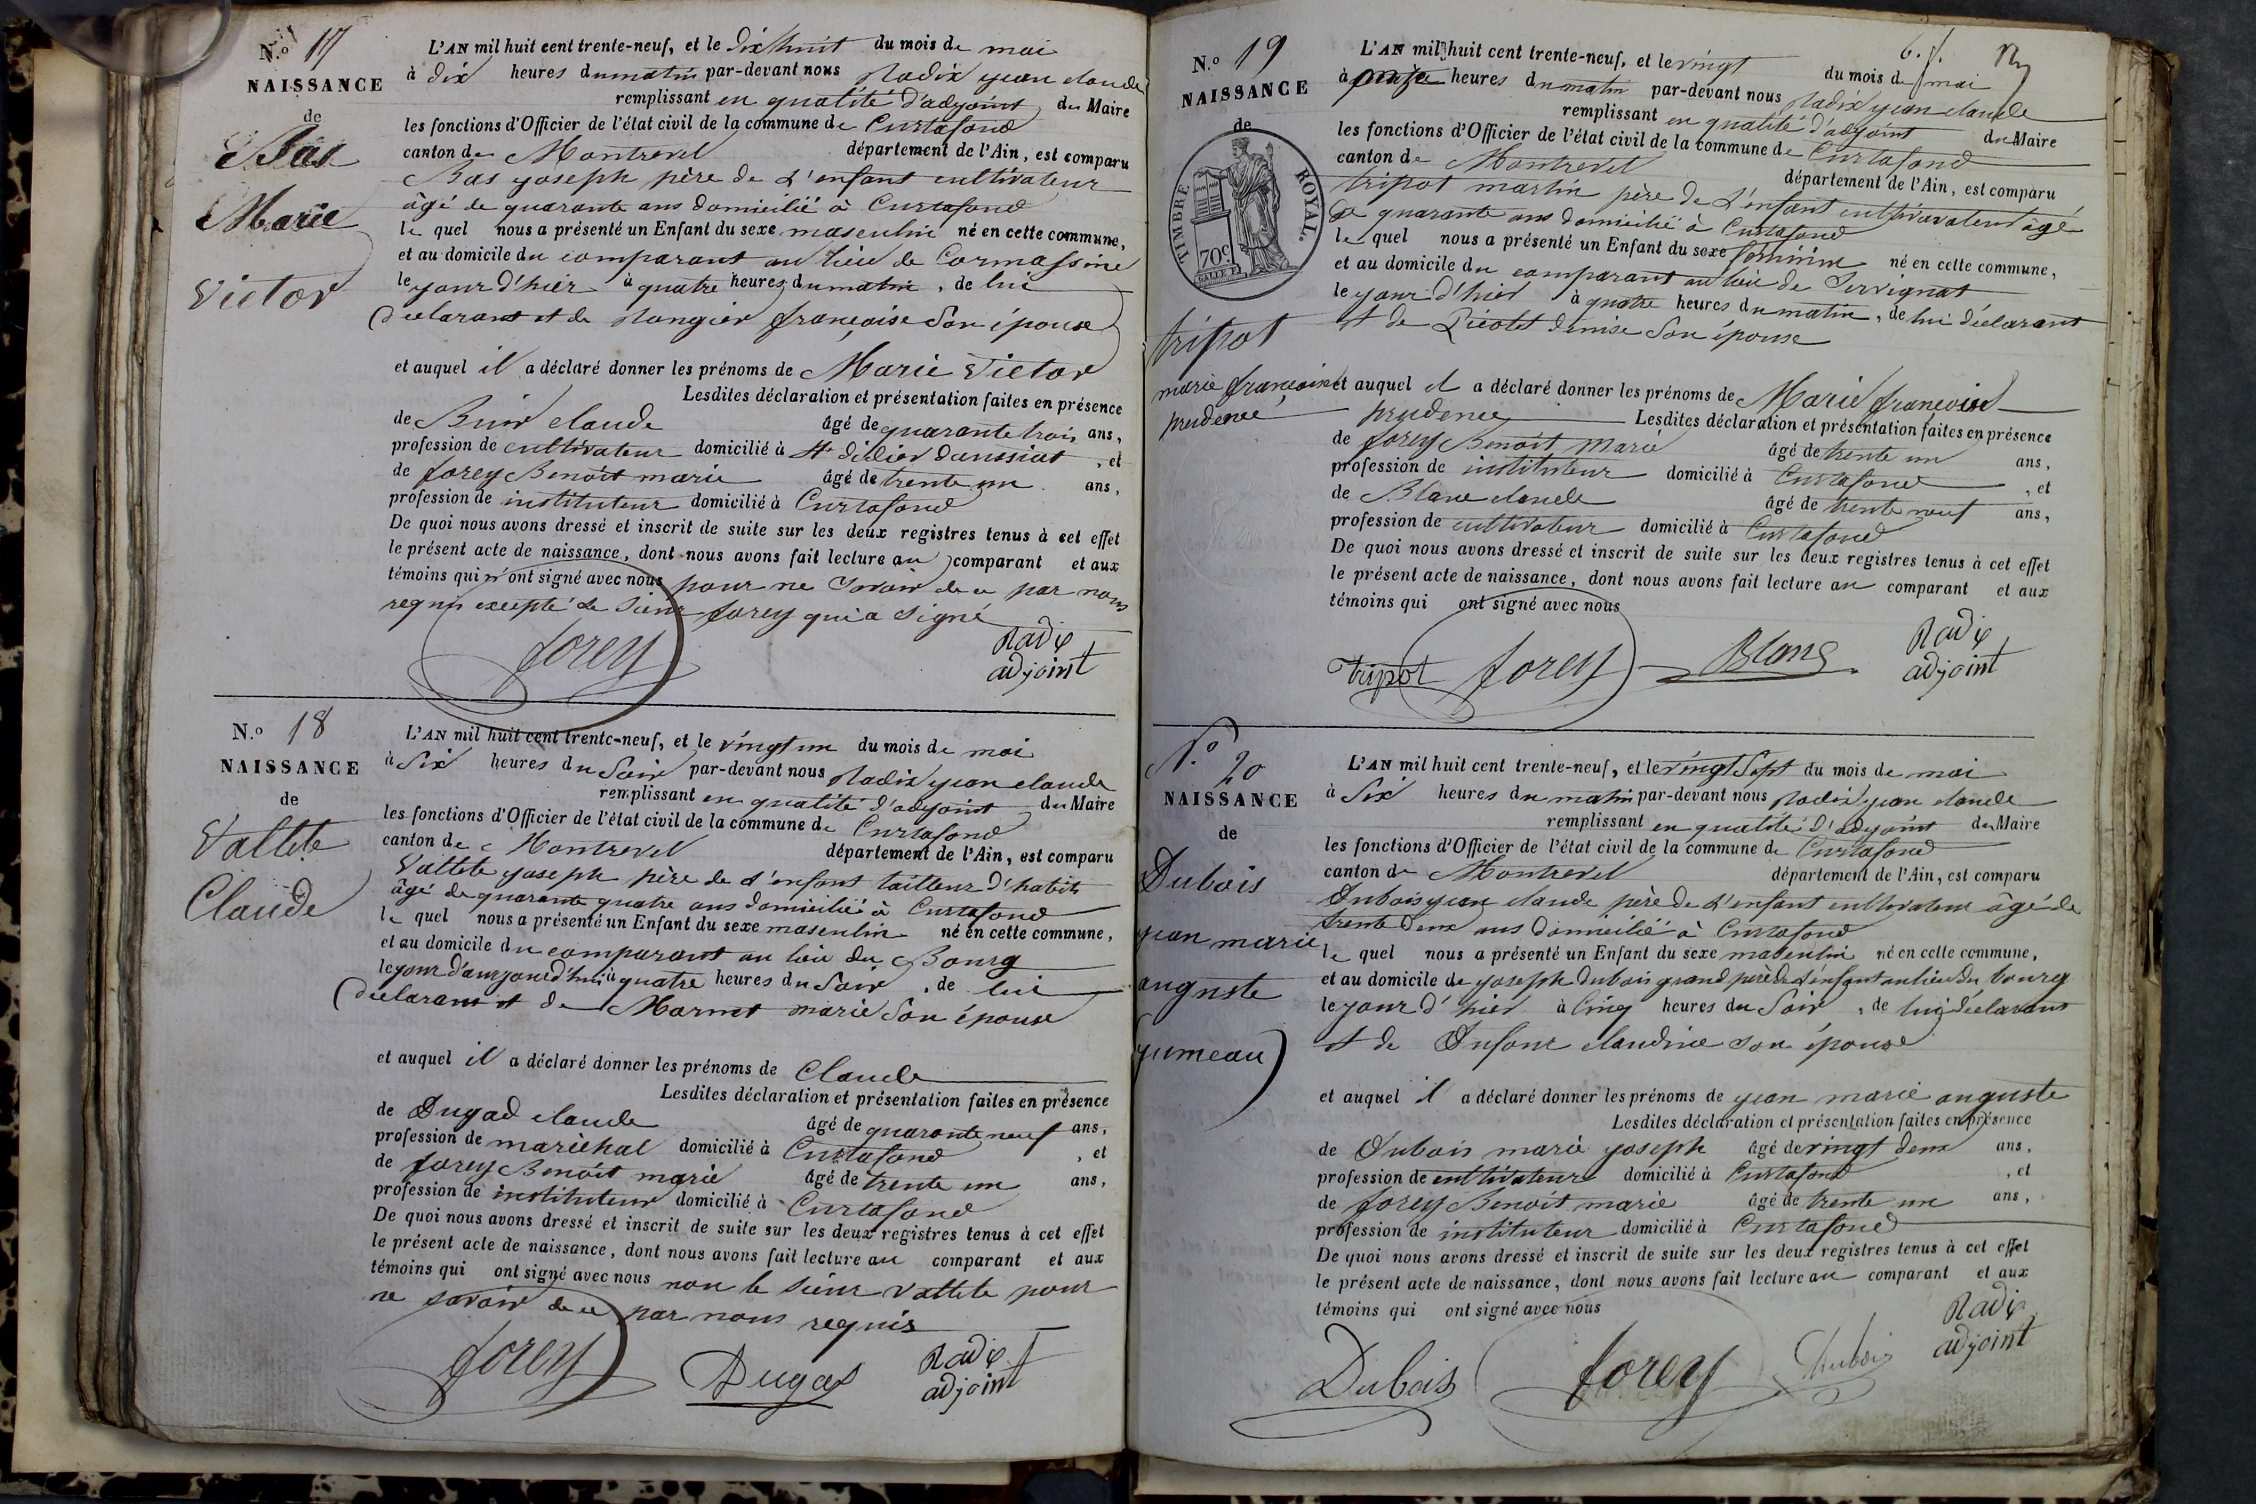 N.º 17
NAISSANCE
de
Bas
Marie
Victor
L'AN mil huit cent trente-neuf, et le dix huit du mois de mai
à dix heures du matin par-devant nous Nadix jean claude
remplissant en qualité d'adjoint du Maire
les fonctions d'Officier de l'état civil de la commune de Curtafond
canton de Montrevel département de l'Ain, est comparu
Bas joseph père de L'enfant cultivateur
âgé de quarante ans domicilié à Curtafond
le quel nous a présenté un Enfant du sexe masculin né en cette commune,
et au domicile du comparant au lieu de Cormassine
le jour d'hier à quatre heures du matin, de lui
déclarant et de Nangier françoise Son épouse
et auquel il a déclaré donner les prénoms de Marie Victor
Lesdites déclaration et présentation faites en présence
de Buir claude âgé de quarante trois ans,
profession de cultivateur domicilié à St didier daussiat, et
de forey Benoit marie âgé de trente un ans,
profession de instituteur domicilié à Curtafond
De quoi nous avons dressé et inscrit de suite sur les deux registres tenus à cet effet
le présent acte de naissance, dont nous avons fait lecture au comparant et aux
témoins qui n'ont signé avec nous pour ne Savoir de ce par nous
requis excepté le Sieur forey qui a Signé
forey
Nadix
adjoint
N.º 18
NAISSANCE
de
Vallete
Claude
L'AN mil huit cent trente-neuf, et le vingt un du mois de mai
à Six heures du Soir par-devant nous Nadix jean claude
remplissant en qualité d'adjoint du Maire
les fonctions d'Officier de l'état civil de la commune de Curtafond
canton de Montrevel département de l'Ain, est comparu
Vallete joseph père de L'enfant tailleur d'habits
âgé de quarante quatre ans domicilié à Curtafond
le quel nous a présenté un Enfant du sexe masculin né en cette commune,
et au domicile du comparant au lieu du Bourg
le jour d'aujourd'hui à quatre heures du Soir, de lui
déclarant et de Marmet marie Son épouse
et auquel il a déclaré donner les prénoms de Claude
Lesdites déclaration et présentation faites en présence
de Dugad claude âgé de quarante neuf ans,
profession de maréchal domicilié à Curtafond, et
de forey Benoit marie âgé de trente un ans,
profession de instituteur domicilié à Curtafond
De quoi nous avons dressé et inscrit de suite sur les deux registres tenus à cet effet
le présent acte de naissance, dont nous avons fait lecture au comparant et aux
témoins qui ont signé avec nous non le Sieur Vallete pour
ne savoir de ce par nous requis
forey
Dugad
Nadix
adjoint
N.º 19
NAISSANCE
de
TIMBRE ROYAL.
70c
tripot
marie françoise
prudence
L'AN mil huit cent trente-neuf, et le vingt du mois de mai
à onze heures du matin par-devant nous Nadix jean claude
remplissant en qualité d'adjoint du Maire
les fonctions d'Officier de l'état civil de la commune de Curtafond
canton de Montrevel département de l'Ain, est comparu
tripot martin père de L'enfant cultivavateur âgé
de quarante ans domicilié à Curtafond
le quel nous a présenté un Enfant du sexe féminin né en cette commune,
et au domicile du comparant au lieu de Servignat
le jour d'hier à quatre heures du matin, de lui déclarant
et de Picolet denise Son épouse
et auquel il a déclaré donner les prénoms de Marie françoise
prudence Lesdites déclaration et présentation faites en présence
de forey Benoit Marie âgé de trente un ans,
profession de instituteur domicilié à Curtafond, et
de Blanc claude âgé de trente neuf ans,
profession de cultivateur domicilié à Curtafond
De quoi nous avons dressé et inscrit de suite sur les deux registres tenus à cet effet
le présent acte de naissance, dont nous avons fait lecture au comparant et aux
témoins qui ont signé avec nous
tripot
forey
Blanc
Nadix
adjoint
N.º 20
NAISSANCE
de
Dubois
jean marie
auguste
(jumeau)
L'AN mil huit cent trente-neuf, et le vingt Sept du mois de mai
à Six heures du matin par-devant nous Nadix jean claude
remplissant en qualité d'adjoint du Maire
les fonctions d'Officier de l'état civil de la commune de Curtafond
canton de Montrevel département de l'Ain, est comparu
Dubois jean claude père de L'enfant cultivateur âgé de
trente deux ans domicilié à Curtafond
le quel nous a présenté un Enfant du sexe masculin né en cette commune,
et au domicile de joseph dubois grand père de L'enfant au lieu du bourg
le jour d'hier à Cinq heures du Soir, de lui déclarant
et de Dufour claudine son épouse
et auquel il a déclaré donner les prénoms de jean marie auguste
Lesdites déclaration et présentation faites en présence
de Dubois marie joseph âgé de vingt deux ans,
profession de cultivateur domicilié à Curtafond, et
de forey Benoit marie âgé de trente un ans,
profession de instituteur domicilié à Curtafond
De quoi nous avons dressé et inscrit de suite sur les deux registres tenus à cet effet
le présent acte de naissance, dont nous avons fait lecture au comparant et aux
témoins qui ont signé avec nous
Dubois
forey
Dubois
Nadix
adjoint